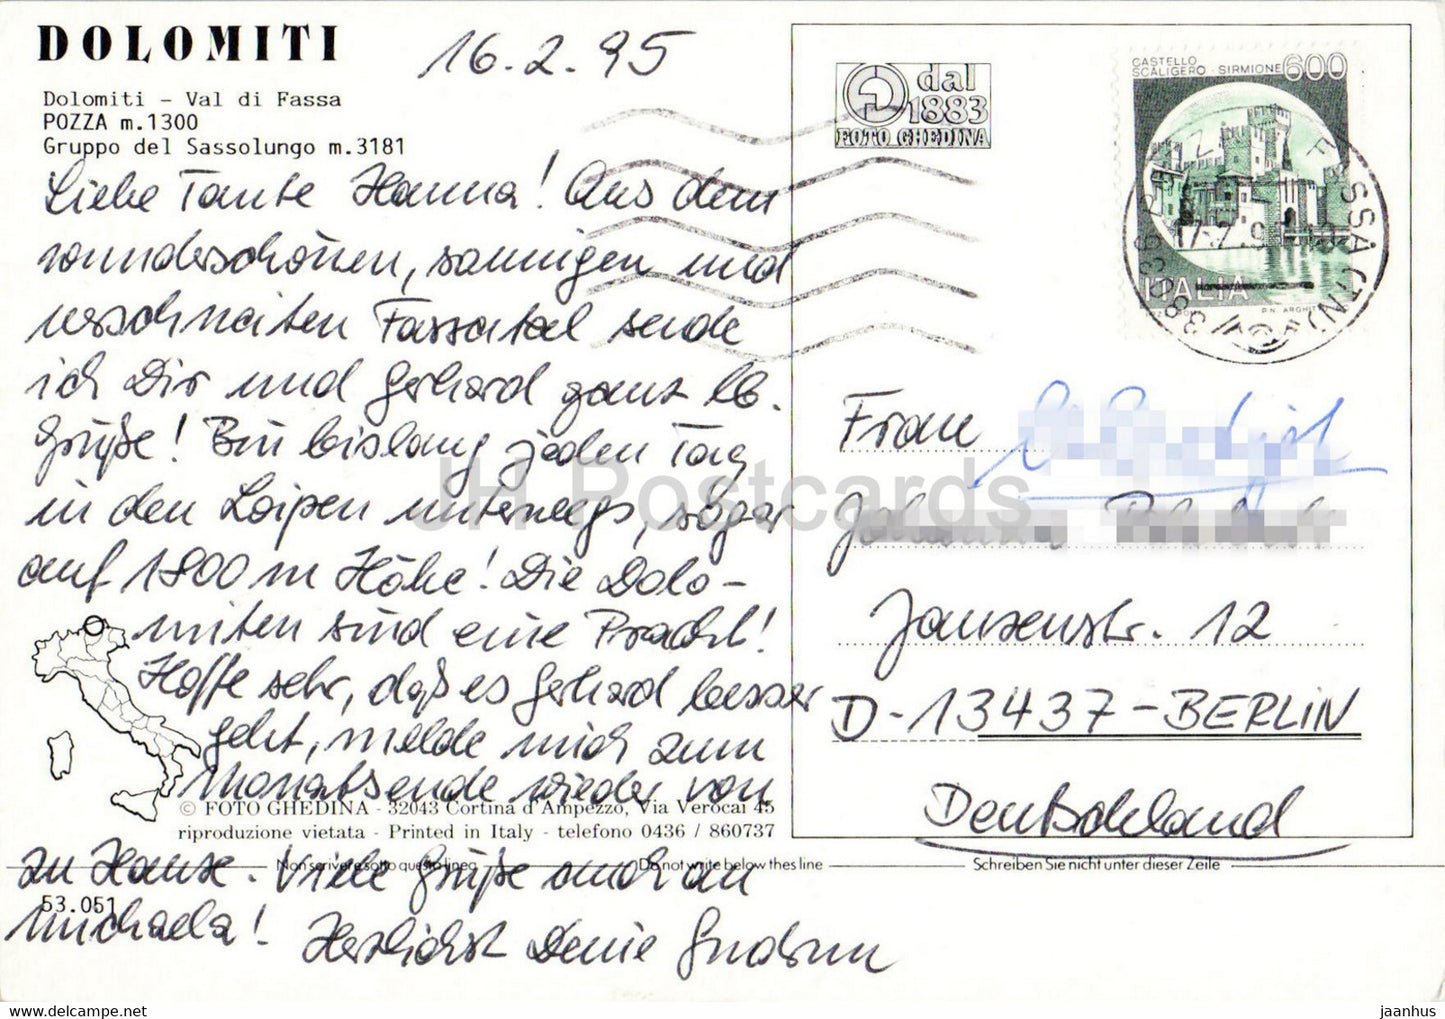 DOLOMITI
16.2.95
Dolomiti - Val di Fassa
POZZA m.1300
Gruppo del Sassolungo m.3181
Liebe Tante Hanna! Aus dem
wunderschönen, sonnigen und
verschneiten Fassatal sende
ich Dir und Gerhard ganz lb.
Grüße! Bin bislang jeden Tag
in den Loipen unterwegs, sogar
auf 1800 m Höhe! Die Dolo-
miten sind eine Pracht!
Hoffe sehr, daß es Gerhard besser
geht, melde mich zum
Monatsende wieder von
zu Hause. Viele Grüße auch an
Michaela! Herzlichst Deine Gudrun
© FOTO GHEDINA - 32043 Cortina d'Ampezzo, Via Verocai 45
riproduzione vietata - Printed in Italy - telefono 0436 / 860737
Non scrivere sotto questa linea
Do not write below thes line
Schreiben Sie nicht unter dieser Zeile
53.051
dal
1883
FOTO GHEDINA
CASTELLO
SCALIGERO - SIRMIONE
600
ITALIA
Frau
Jansenstr. 12
D-13437-BERLIN
Deutschland
JH Postcards
https://www.jhpostcards.com
jaanhus